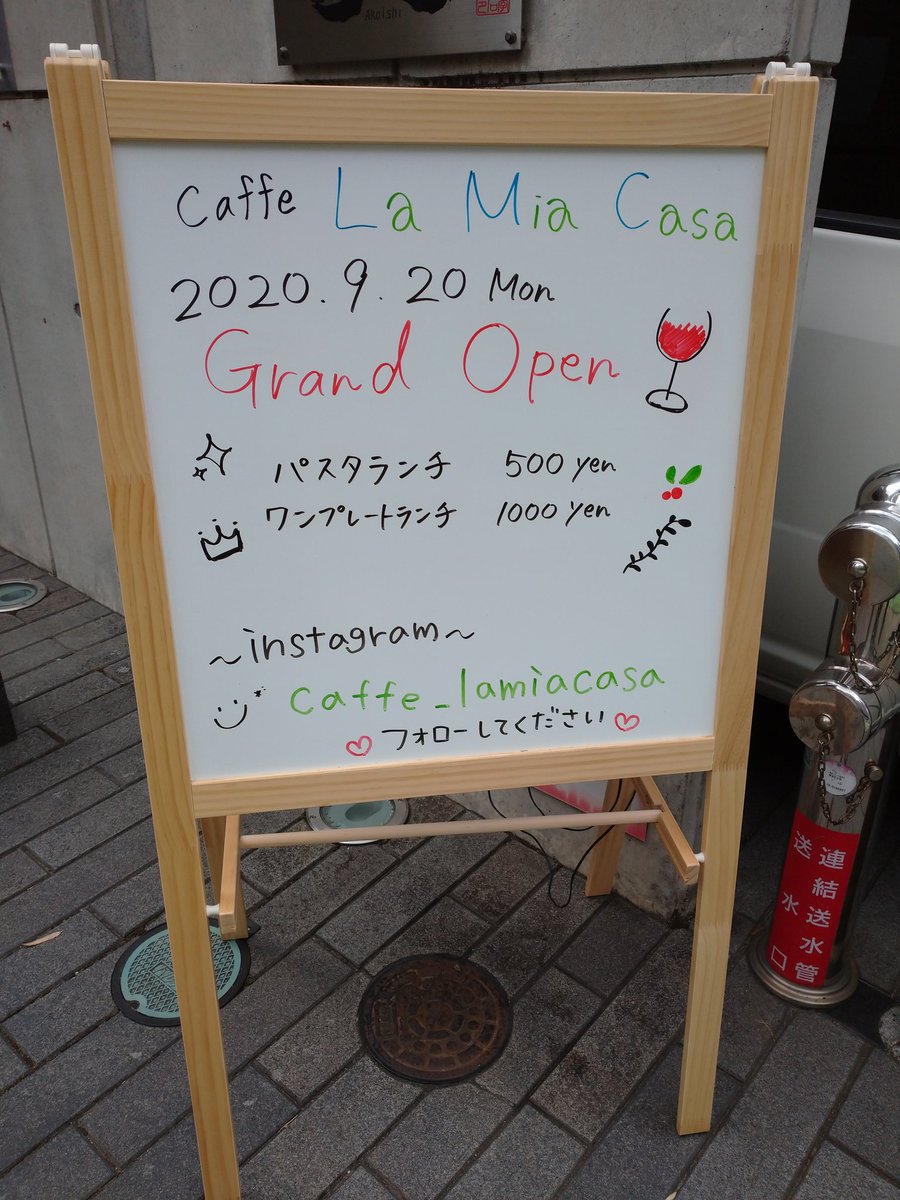 Akaishi
Caffe La Mia Casa
2020.9.20 Mon
Grand Open
パスタランチ 500 yen
ワンプレートランチ 1000 yen
~instagram~
caffe_lamiacasa
フォローしてください
連結送水管
送水口